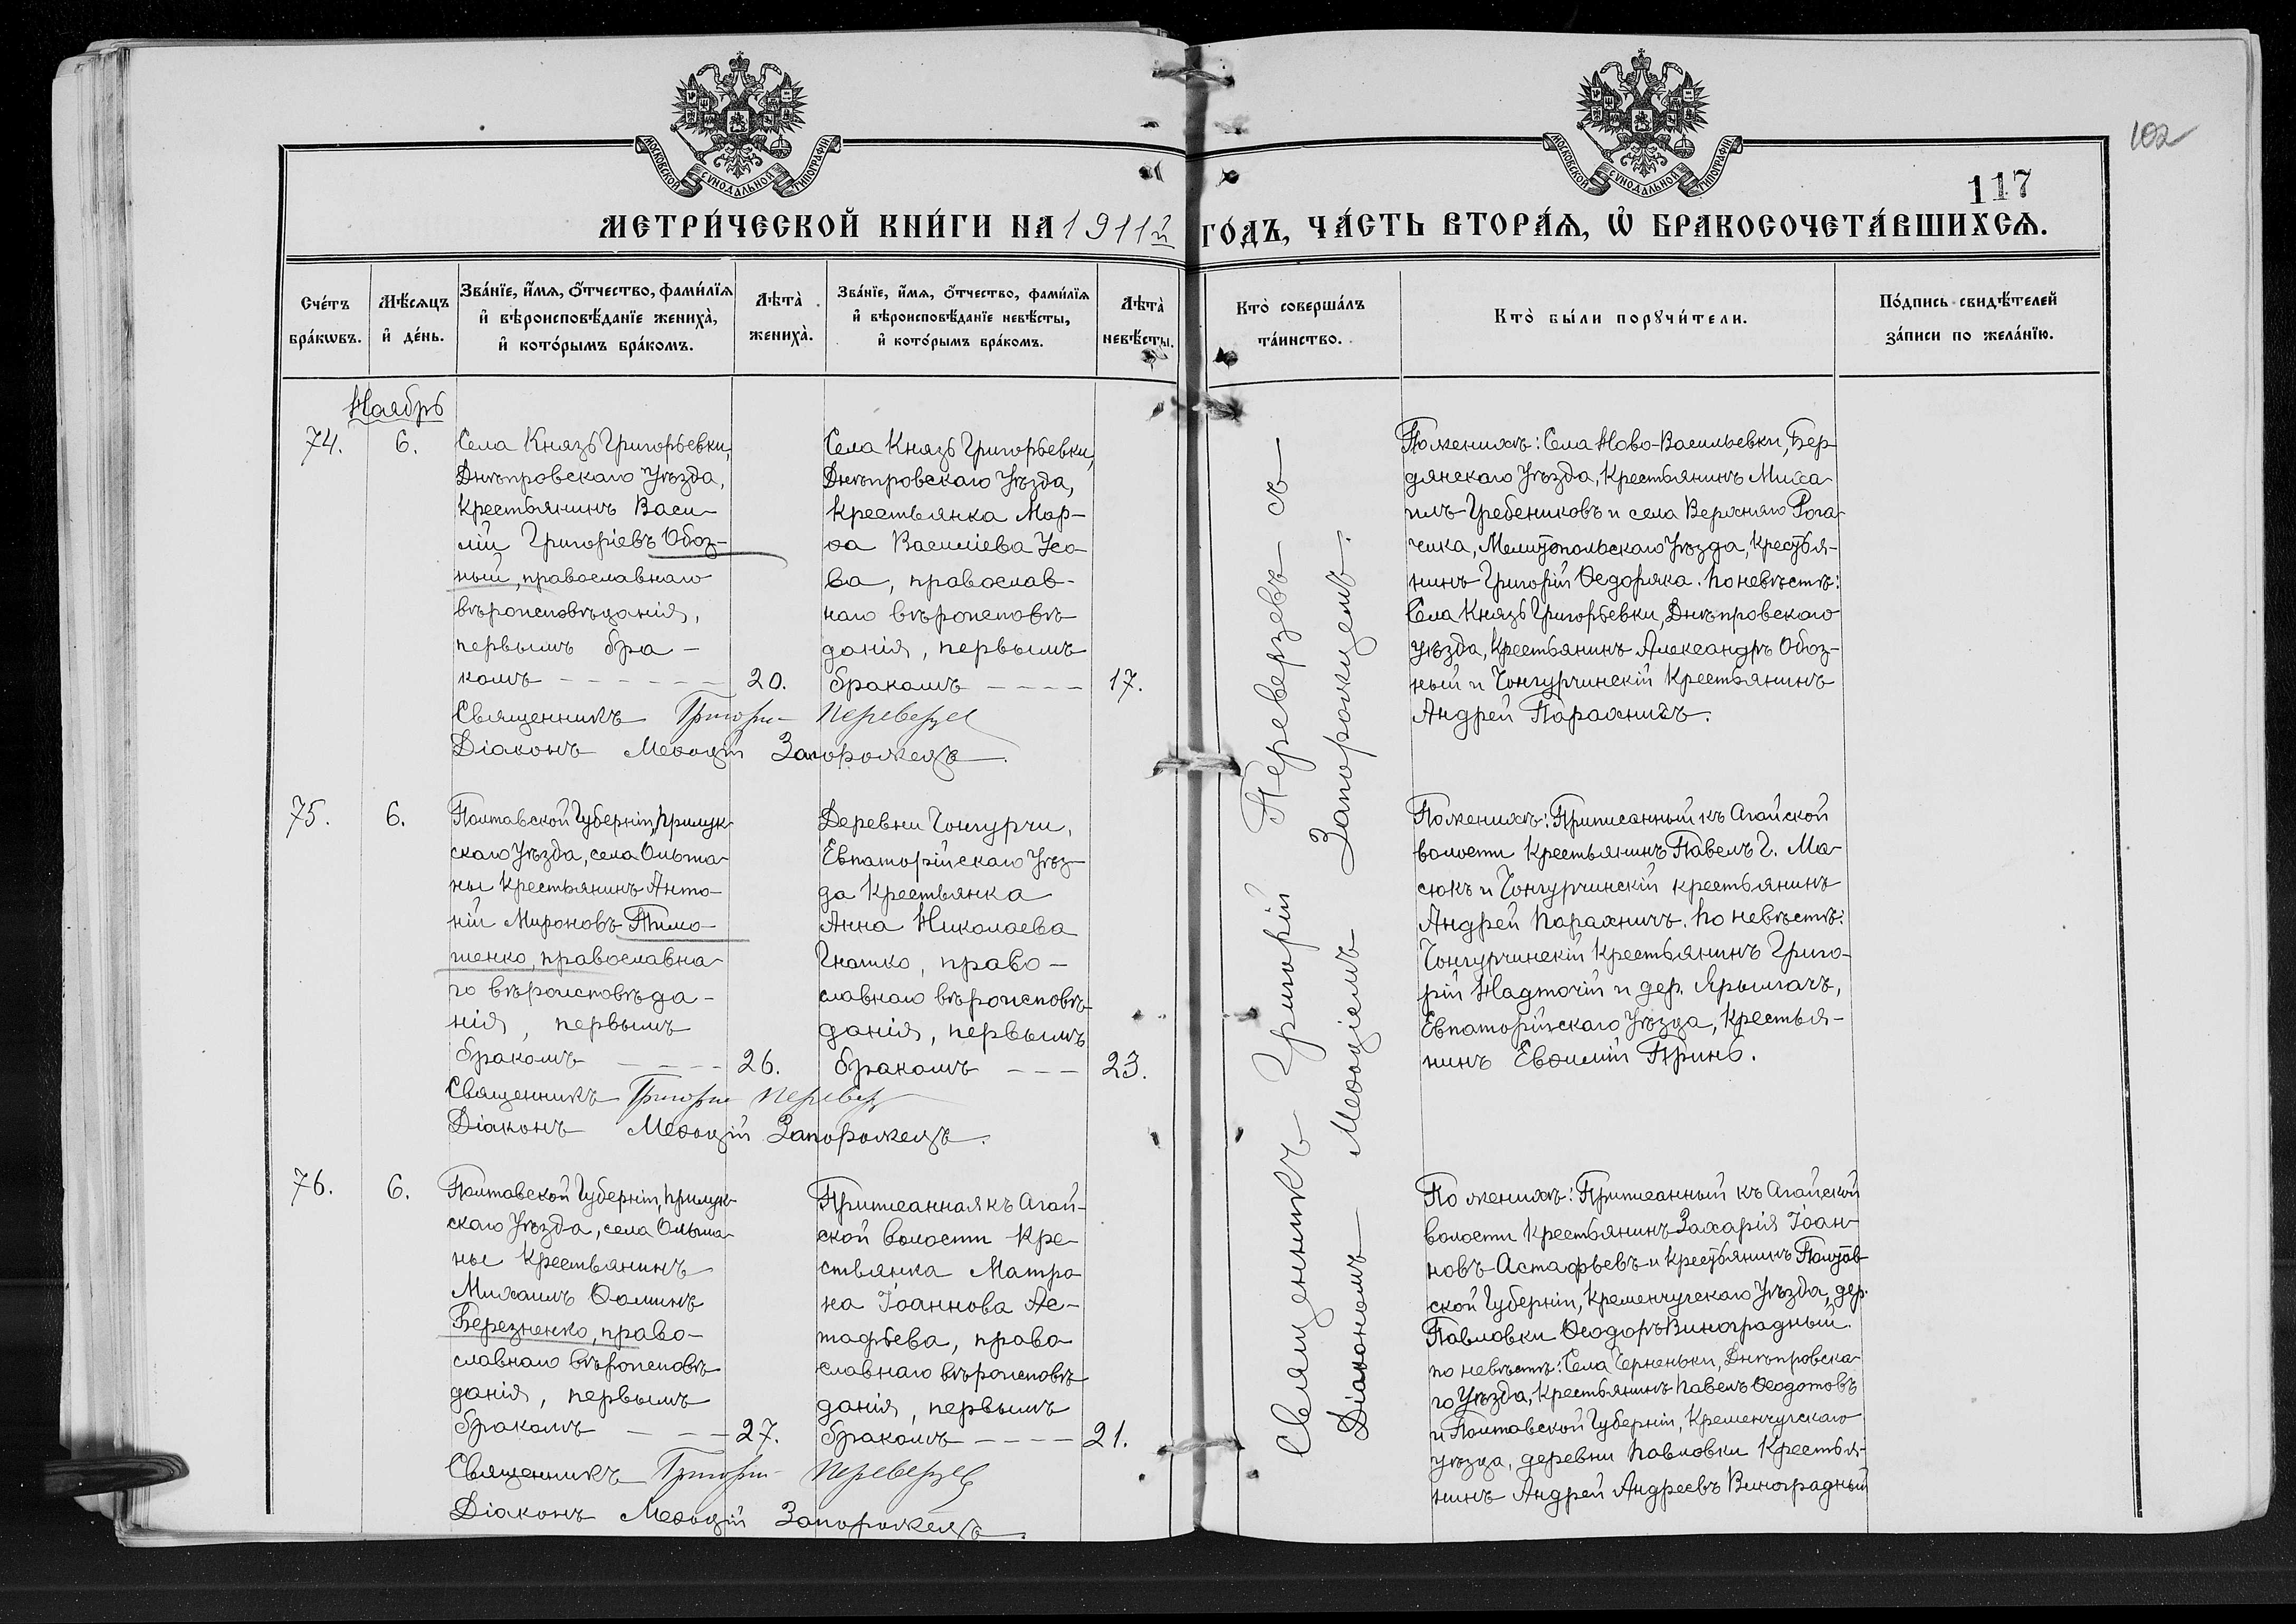 102
117
МОСКОВСКОЙ СѴНОДАЛЬНОЙ ТИПОГРАФІИ
МОСКОВСКОЙ СѴНОДАЛЬНОЙ ТИПОГРАФІИ
МЕТРИ́ЧЕСКОЙ КНИ́ГИ НА 1911й ГО́ДЪ, ЧА́СТЬ ВТОРА́Я, Ѡ҆ БРАКОСОЧЕТА́ВШИХСѦ.
Сче́тъ
бра́кѡвъ.
Мѣ́сяцъ
и҆ де́нь.
Зва́нїе, и҆́мѧ, ѻ҆́тчество, фами́лїѧ
и҆ вѣроисповѣ́данїе жениха̀,
и҆ кото́рымъ бра́комъ.
Лѣта̀
жениха̀.
Зва́нїе, и҆́мѧ, ѻ҆́тчество, фами́лїѧ
и҆ вѣроисповѣ́данїе невѣ́сты,
и҆ кото́рымъ бра́комъ.
Лѣта̀
невѣ́сты.
Кто̀ соверша́лъ
та́инство.
Кто̀ бы́ли порꙋчи́тели.
По́дпись свидѣ́телей
за́писи по жела́нїю.
Ноябрь
74.
6.
Села Князь Григорьевки,
Днѣпровскаго Уѣзда,
Крестьянинъ Васи-
лій Григоріевъ Обоз-
ный, православнаго
вѣроисповѣданія,
первымъ бра-
комъ
20.
Села Князь Григорьевки,
Днѣпровскаго Уѣзда,
Крестьянка Мар-
ѳа Василіева Усо-
ва, православ-
наго вѣроисповѣ
данія, первымъ
бракомъ
17.
Священникъ Григорій Переверзев
Діаконъ Меѳодій Запорожецъ.
Священникъ Григорій Переверзевъ съ
Діакономъ Меѳодіемъ Запорожцемъ.
По женихѣ: Села Ново-Васильевки, Бер-
дянскаго Уѣзда, Крестьянинъ Миха-
илъ Гребениковъ и села Верхняго Рога-
чика, Мелитопольскаго Уѣзда, Крестья-
нинъ Григорій Ѳедоряка. По невѣстѣ:
Села Князь Григорьевки, Днѣпровскаго
уѣзда, Крестьянинъ Александръ Обоз-
ный и Чонгурчинскій Крестьянинъ
Андрей Парахничъ.
75.
6.
Полтавской Губерніи, Прилук-
скаго Уѣзда, села Ольша-
ны Крестьянинъ Анто-
ній Мироновъ Тимо-
шенко, православна-
го вѣроисповѣда-
нія, первымъ
бракомъ
26.
Деревни Чонгурчи,
Евпаторійскаго Уѣз-
да Крестьянка
Анна Николаева
Гнатко, право-
славнаго вѣроисповѣ-
данія, первымъ
бракомъ
23.
Священникъ Григорій Перевер
Діаконъ Меѳодій Запорожецъ.
По женихѣ: Приписанный къ Агайской
волости Крестьянинъ Павелъ Г. Ма-
сюкъ и Чонгурчинскій крестьянинъ
Андрей Парахничъ. По невѣстѣ:
Чонгурчинскій Крестьянинъ Григо-
рій Надточій и дер. Ярылгачъ,
Евпаторійскаго Уѣзда, Крестья-
нинъ Евѳимій Принь.
76.
6.
Полтавской Губерніи, Прилук-
скаго Уѣзда, села Ольша-
ны Крестьянинъ
Михаилъ Ѳоминъ
Березненко, право-
славнаго вѣроисповѣ
данія, первымъ
бракомъ
27.
Приписанная къ Агай-
ской волости Кре
стьянка Матро
на Іоаннова Ас-
тафьева, право
славнаго вѣроисповѣ
данія, первымъ
бракомъ
21.
Священникъ Григорій Переверзев
Діаконъ Меѳодій Запорожецъ.
По женихѣ: Приписанный къ Агайской
волости Крестьянинъ Захарія Іоан-
новъ Астафьевъ и Крестьянинъ Полтав
ской Губерніи, Кременчугскаго Уѣзда, дер.
Павловки Ѳеодоръ Виноградный.
по невѣстѣ: Села Черненьки, Днѣпровска-
го Уѣзда, Крестьянинъ Павелъ Ѳеодотовъ
и Полтавской Губерніи, Кременчугскаго
уѣзда, деревни Павловки Крестья-
нинъ Андрей Андреевъ Виноградный